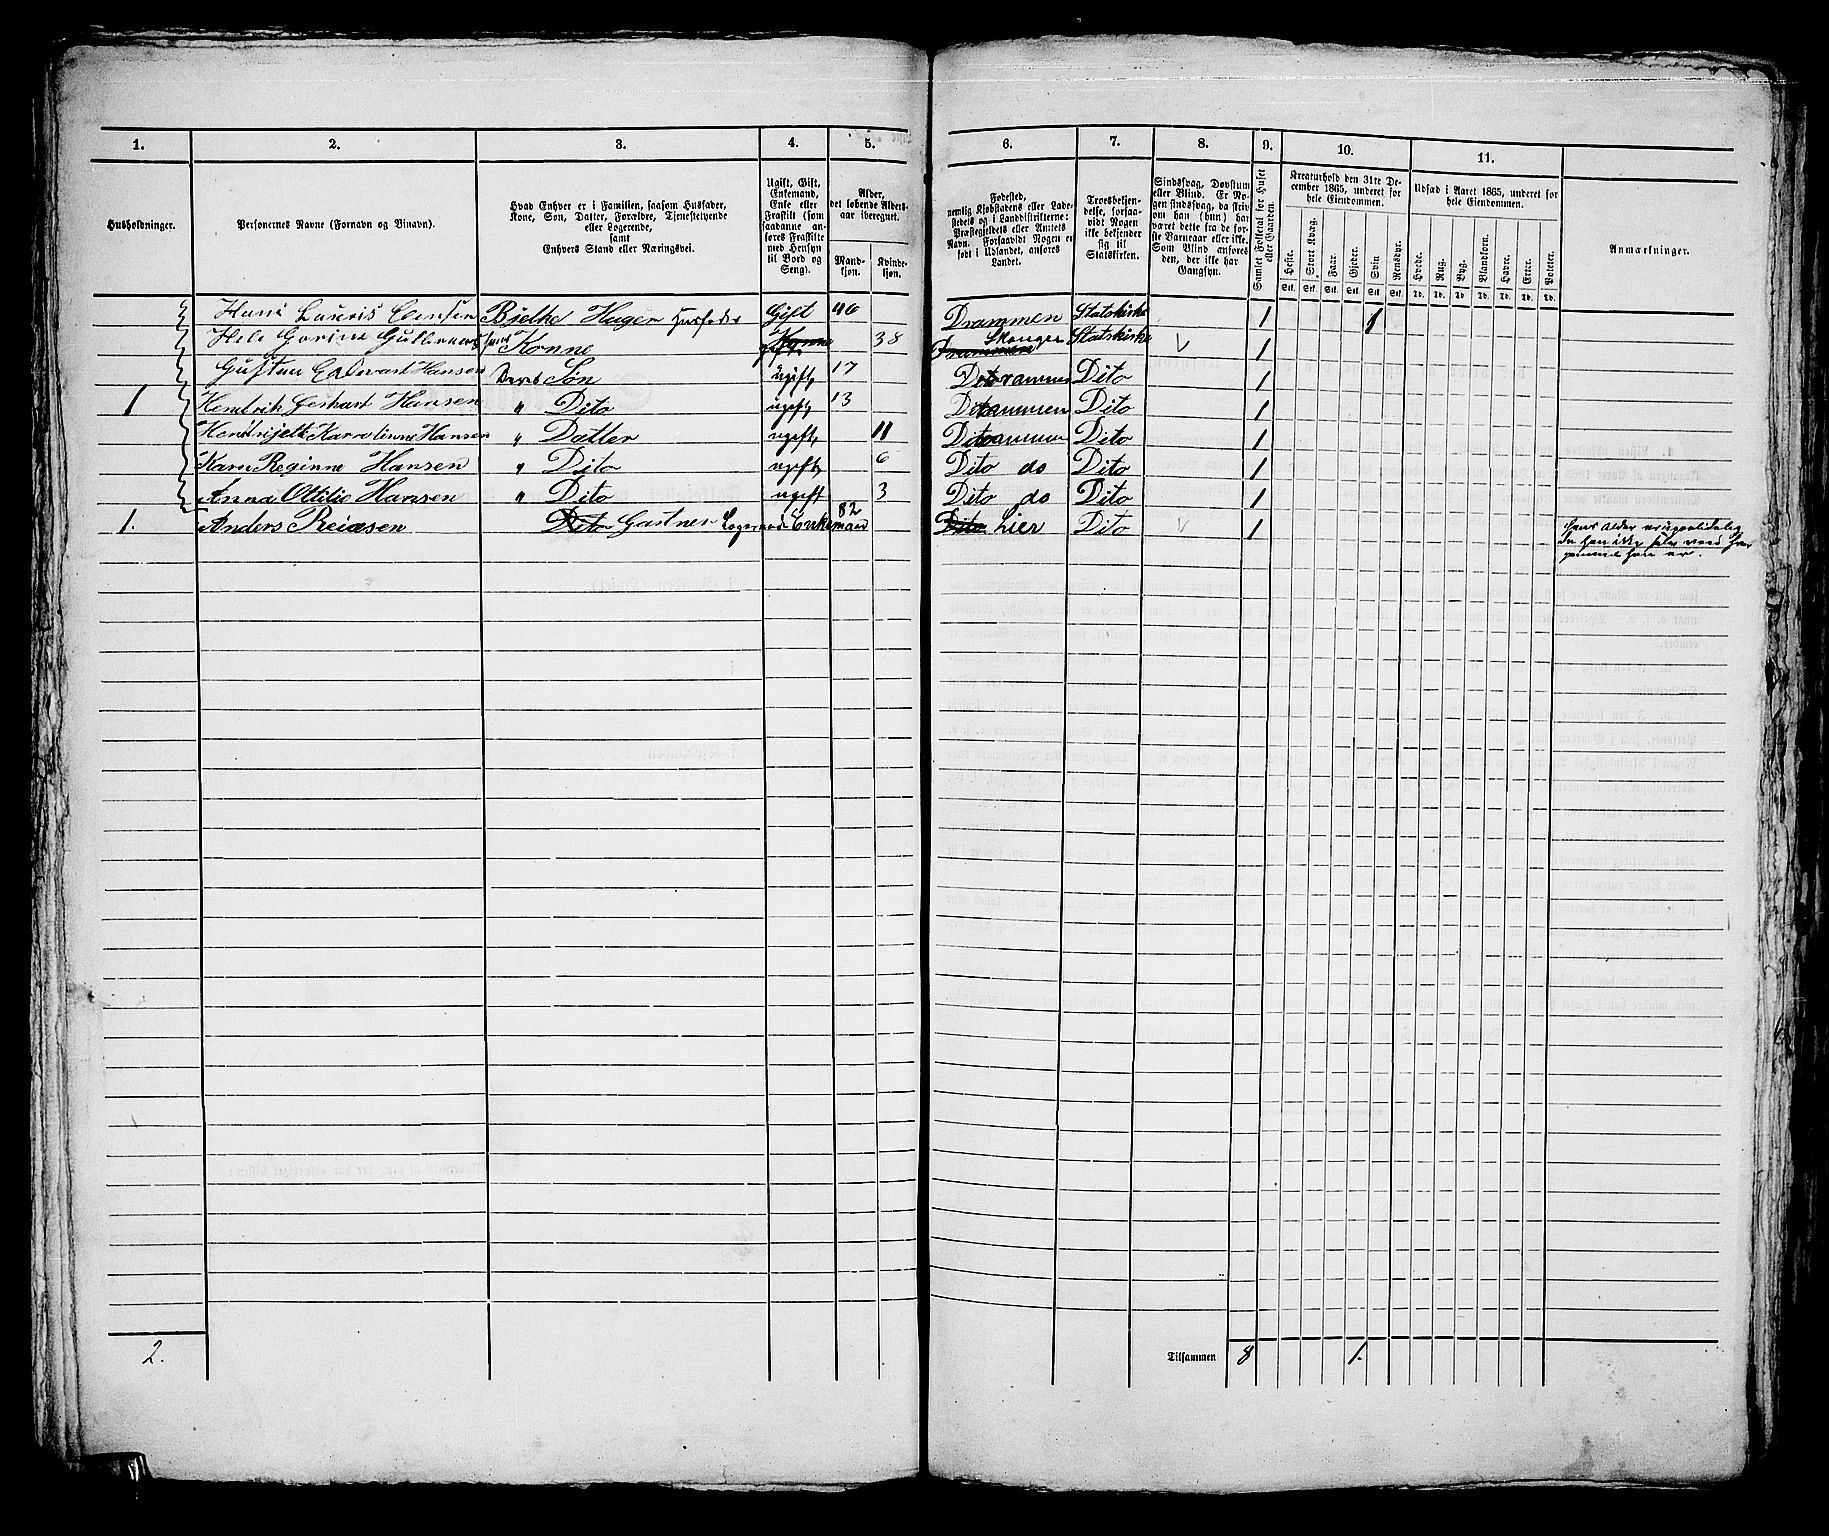 1. 2. 3. 4. 5. 6. 7. 8. 9. 10. 11.
Husholdninger.
Personernes Navne (Fornavn og Binavn).
Hvad Enhver er i Familien, saasom Husfader,
Kone, Søn, Datter, Forældre, Tjenestetyende
eller Logerende,
samt
Enhvers Stand eller Næringsvei.
Ugift, Gift,
Enkemand,
Enke eller
Fraskilt (som
saadanne an-
føres Fraskilte
med Hensyn
til Bord og
Seng).
Alder,
det løbende Alders-
aar iberegnet.
Mand-
kjøn.
Kvinde-
kjøn.
Fødested,
nemlig Kjøbstadens eller Lade-
stedets og i Landdistrikterne:
Præstegjeldets eller Amtets
Navn. Forsaavidt Nogen er
født i Udlandet, anføres
Landet.
Troesbekjen-
delse, forsaa-
vidt Nogen
ikke bekjender
sig til
Statskirken.
Sindssvag, Døvstum
eller Blind. Er No-
gen sindssvag, da skriv
om han (hun) har
været dette fra de før-
ste Barneaar eller ikke.
Som Blind anføres
den, der ikke har
Gangsyn.
Samlet Folketal for Huset
eller Gaarden.
Kreaturhold den 31te De-
cember 1865, underet for
hele Eiendommen.
Heste. Stort Kvæg. Faar. Gjeder. Svin. Rensdyr.
Stk. Stk. Stk. Stk. Stk. Stk.
Udsæd i Aaret 1865, underet for
hele Eiendommen.
Hvede. Rug. Byg. Blandkorn. Havre. Erter. Poteter.
Td. Td. Td. Td. Td. Td. Td.
Anmærkninger.
Hans Lauris Hansen Bjelke Huger Husfader Gift 46 Drammen Statskirke 1 1
Hele Gorine Konne Gift 38 Skouger Statskirke 1
Gustav Edevart Hansen Deres Søn ugift 17 Drammen Dito 1
1 Hendrik Gerhart Hansen " Dito ugift 13 Drammen Dito 1
Hendrijette Karolinne Hansen " Datter ugift 11 Drammen Dito 1
Karn Reginne Hansen " Dito ugift 6 Dito do Dito 1
Anna Ottilie Hansen " Dito ugift 3 Dito do Dito 1
1. Anders Reiæsen Dito Gartner Logerende Enkemand 82 Dito Lier Dito 1
hans Alder er upaalidelig
da han ikke selv veed hvor
gammel han er.
2. Tilsammen 8 1.